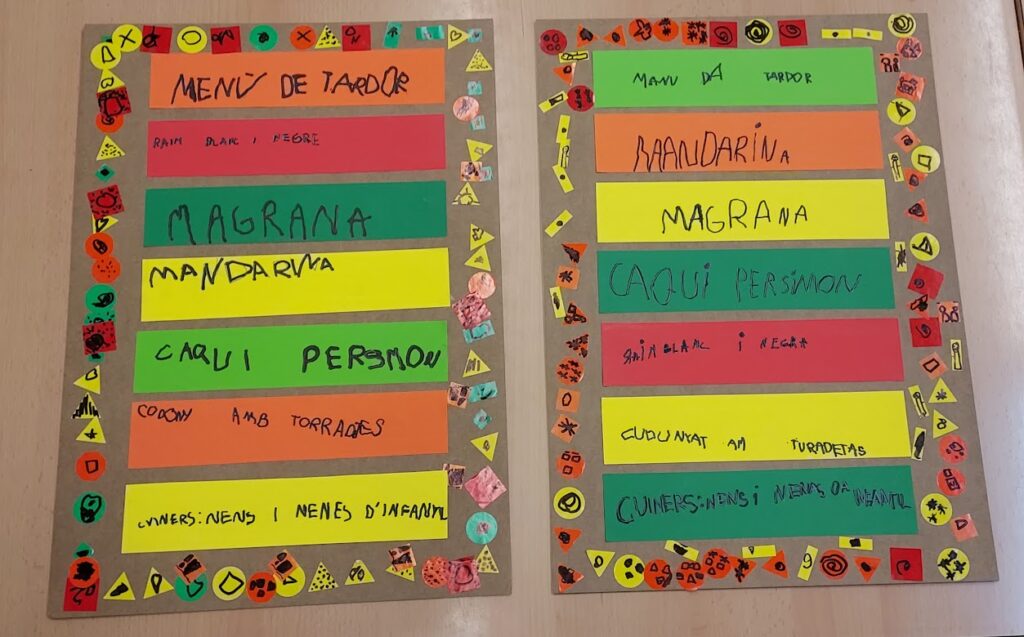 MENÚ DE TARDOR
RAIM BLANC I NEGRE
MAGRANA
MANDARINA
CAQUI PERSIMON
CODONY AMB TORRADES
CUINERS: NENS I NENES D'INFANTIL
MANU DA TARDOR
MAANDARINA
MAGRANA
CAQUI PERSIMON
RAIM BLANC i NEGRA
CUDUNYAT AM TURADETAS
CUINERS: NENS i NENAS DA INFANTIL